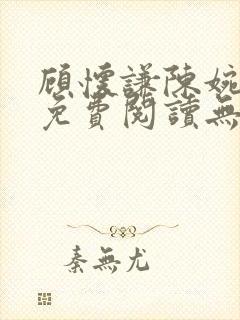 顧懷謙陳婉
免費閱讀無
秦無尤